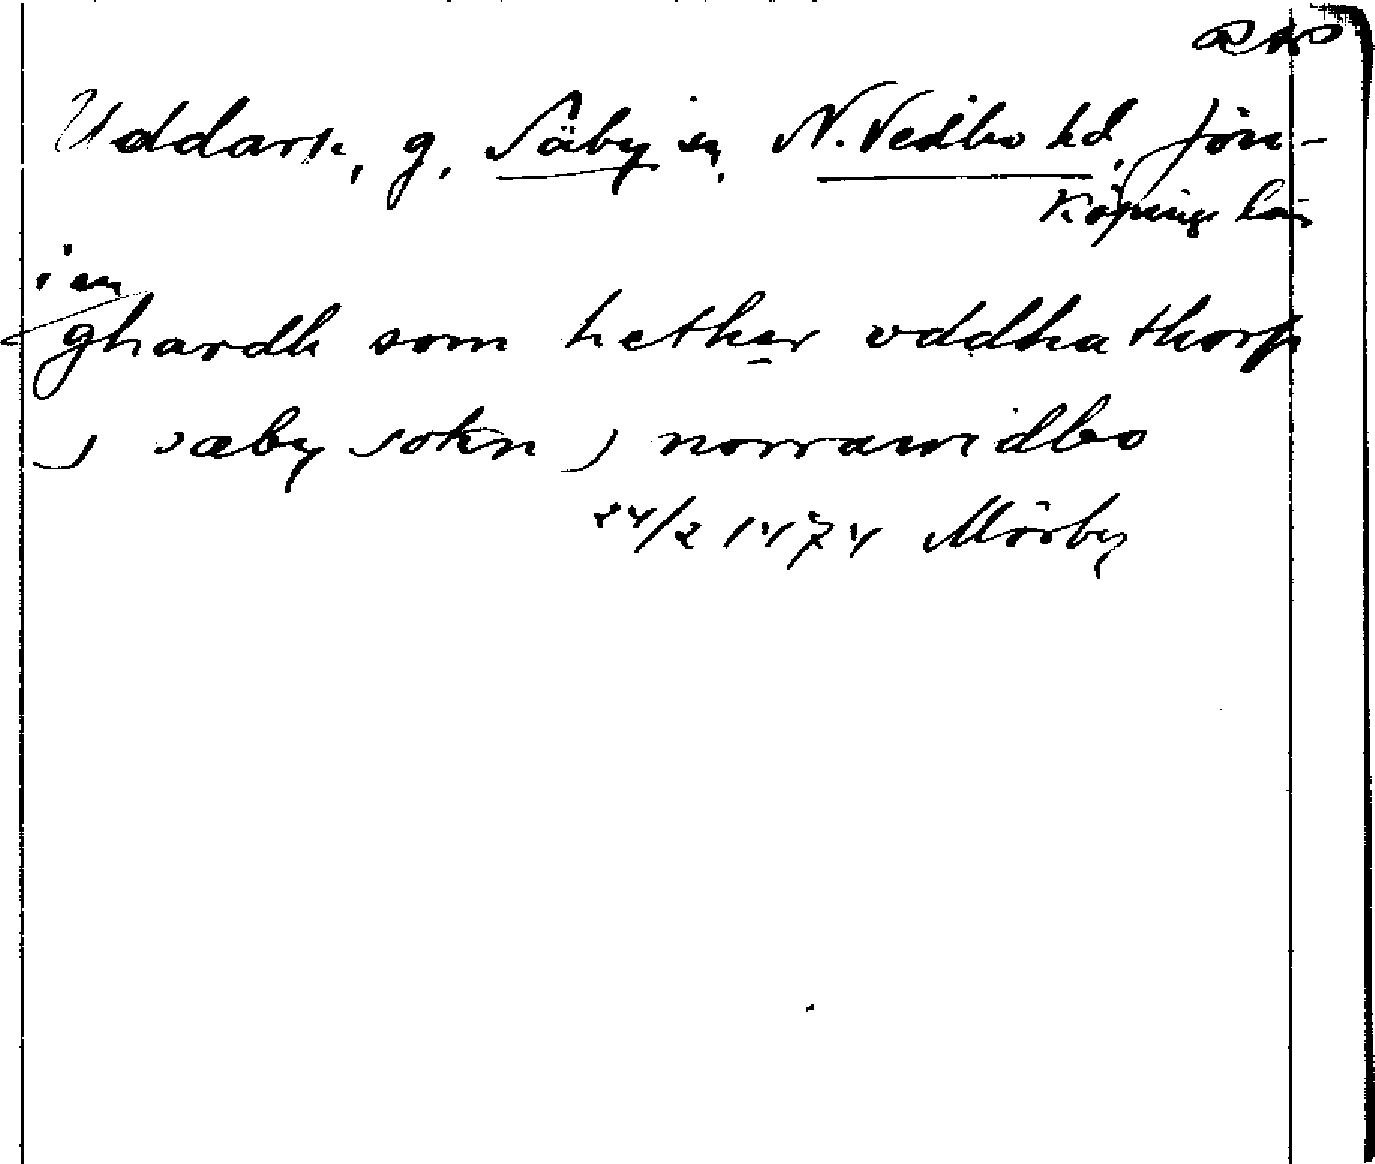 Uddarp, g, Säby sn, N. Vedbo hd, Jön-
köpings län
i en
ghardh som hether vddhathorp
j sæby sokn j norrawidbo
24/2 1474 Mörby